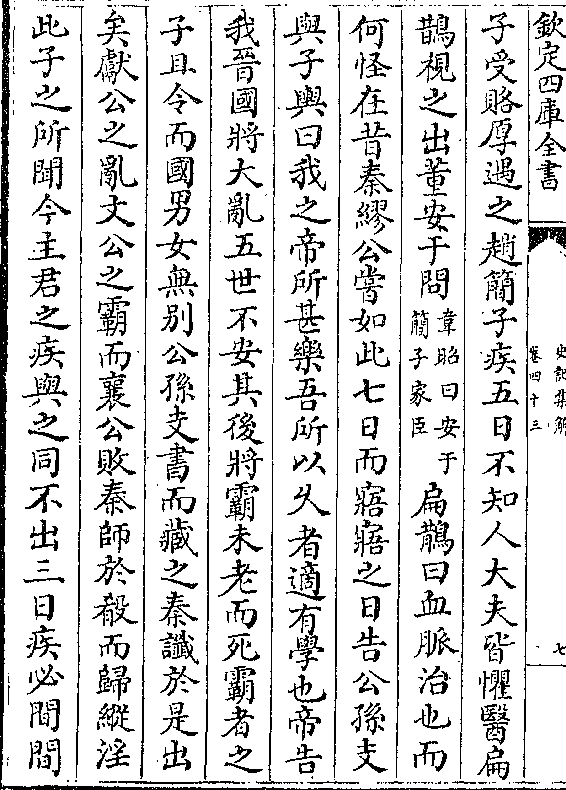 欽定四庫全書
史記集解
卷四十三
七
子受賂厚遇之趙簡子疾五日不知人大夫皆懼醫扁
鵲視之出董安于問韋昭曰安于簡子家臣扁鵲曰血脈治也而
何怪在昔秦繆公嘗如此七日而寤寤之日告公孫支
與子輿曰我之帝所甚樂吾所以久者適有學也帝告
我晉國將大亂五世不安其後將霸未老而死霸者之
子且令而國男女無別公孫支書而藏之秦讖於是出
矣獻公之亂文公之霸而襄公敗秦師於殽而歸縱淫
此子之所聞今主君之疾與之同不出三日疾必間間